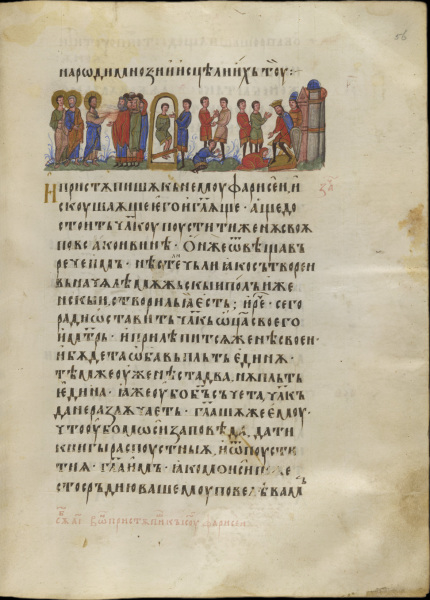 нарѡди мнѡѕи и исцѣли ихъ тоу:
И пристѫпишѫ къ немоу фарисеи, и
скоушаѫще его и гл҃ѫще · аще до
стоитъ чл҃коу поустити женѫ своѫ
по всѧкои винѣ · Онже ѿвѣщав
рече имъ · нѣсте ли чьли ꙗко сътворен
въ начѧлѣ мѫжьскыи полъ и же
нскыи, створилъ ꙗ естъ; и рече · сего
ради ѡставитъ чл҃къ ѡц҃а своего
и мт҃рь · и прилѣпитсѧ женѣ своеи ·
и бѫдета ѡба въ плъть единѫ ·
тѣмже оуже нѣста два, нѫ плъть
едина · ꙗже оубо б҃ъ съчета, чл҃къ
да не разлѫчаетъ · гл҃ашѫ же емоу ·
что оубо мѡиси заповѣда, дати
книгы распоустныѫ, и ѿпоусти
ти ѧ · гл҃а имъ · ꙗко мѡиси по же
стосръдию вашемоу повелѣ вамъ